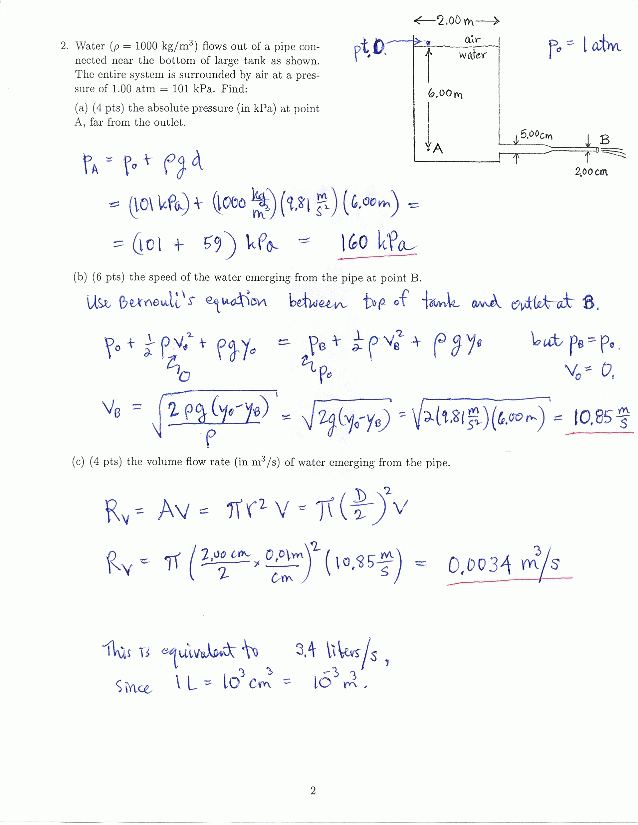 2. Water (ρ = 1000 kg/m³) flows out of a pipe con-
nected near the bottom of large tank as shown.
The entire system is surrounded by air at a pres-
sure of 1.00 atm = 101 kPa. Find:
(a) (4 pts) the absolute pressure (in kPa) at point
A, far from the outlet.
←2.00 m→
pt.0.
air
water
P₀ = 1 atm
6.00 m
A
5.00cm
B
2.00 cm
P_A = P₀ + ρ g d
= (101 kPa) + (1000 kg/m³)(9.81 m/s²)(6.00m) =
= (101 + 59) kPa = 160 kPa
(b) (6 pts) the speed of the water emerging from the pipe at point B.
Use Bernouli's equation between top of tank and outlet at B.
P₀ + ½ρV₀² + ρgy₀ = P_B + ½ρV_B² + ρgy_B but P_B = P₀.
0 P₀ V₀ = 0.
V_B = √(2ρg(y₀-y_B)/ρ) = √(2g(y₀-y_B)) = √(2(9.81 m/s²)(6.00m)) = 10.85 m/s
(c) (4 pts) the volume flow rate (in m³/s) of water emerging from the pipe.
R_V = AV = πr² V = π(D/2)² V
R_V = π (2.00 cm/2 × 0.01m/cm)² (10.85 m/s) = 0.0034 m³/s
This is equivalent to 3.4 liters/s,
since 1 L = 10³ cm³ = 10⁻³ m³.
2